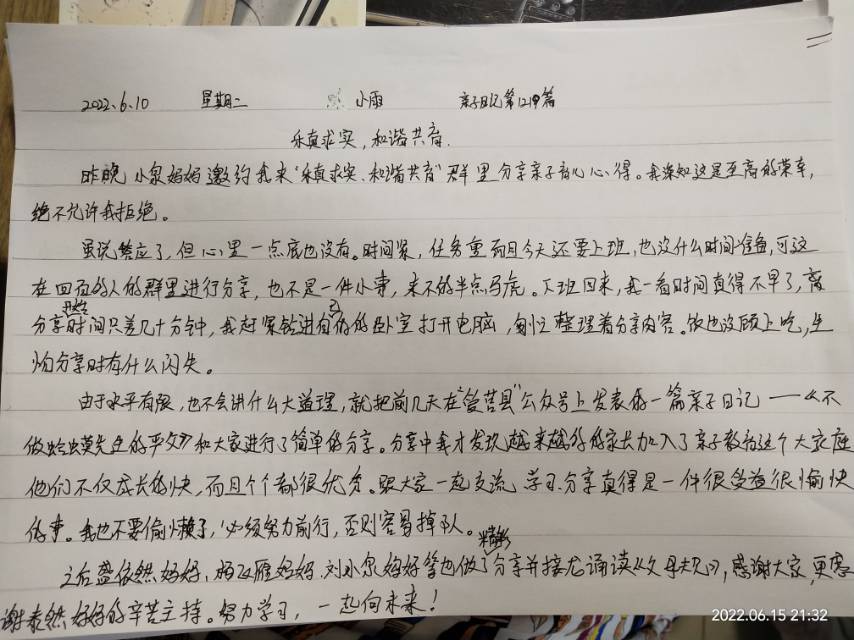 2022.6.10 星期二 小雨 亲子日记第1219篇
乐真求实,和谐共育.
昨晚小泉妈妈邀约我来“乐真求实.和谐共育”群里分享亲子育儿心得。我深知这是至高的荣幸,
绝不允许我拒绝。
虽说答应了,但心里一点底也没有。时间紧,任务重而且今天还要上班,也没什么时间准备,可这
在四百的人的群里进行分享,也不是一件小事,来不的半点马虎。下班回来,我一看时间真得不早了,离
分享开始时间只差几十分钟,我赶紧钻进自己的卧室打开电脑,匆忙整理着分享内容。饭也没顾上吃,生
怕分享时有什么闪失。
由于水平有限,也不会讲什么大道理,就把前几天在“ 县”公众号上发表的一篇亲子日记——《不
做蛤蟆先生的 》和大家进行了简单的分享。分享中我才发现越来越的的家长加入了亲子教育这个大家庭
他们不仅成长的快,而且个个都很优秀。跟大家一起交流,学习分享真得是一件很受益很愉快
的事。我也不要偷懒了,必须努力前行,否则容易掉队。
之后盛依然妈妈, 雁妈妈.刘小泉妈妈等也做了精彩分享并接龙诵读《父母规》,感谢大家,更感
谢 然妈妈的辛苦主持。努力学习,一起向未来!
2022.06.15 21:32